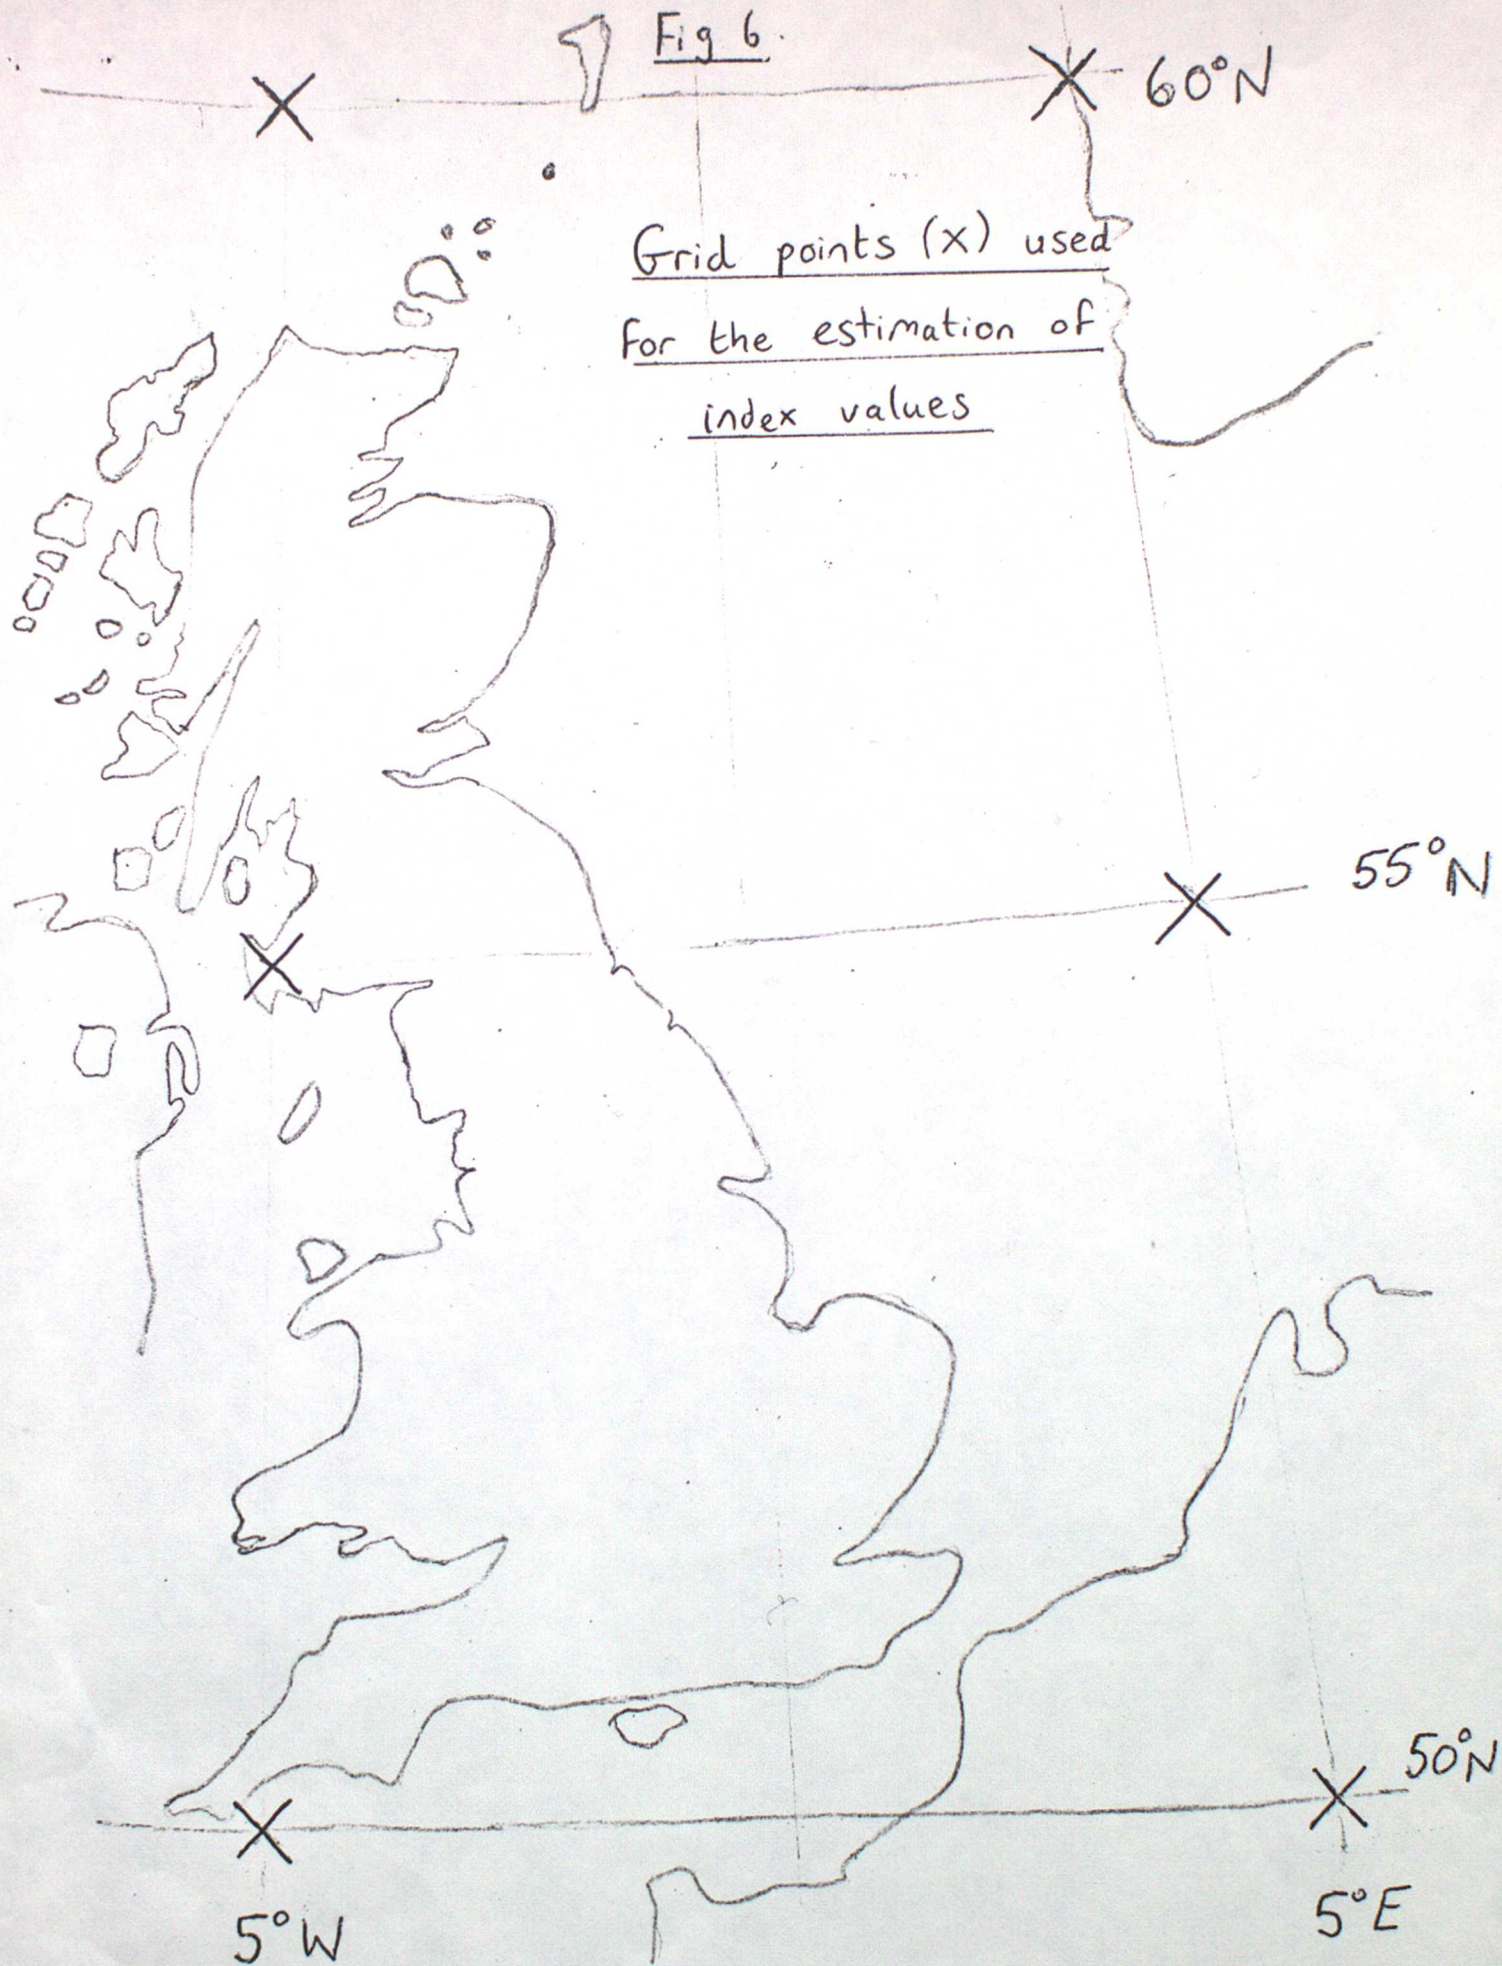 Fig 6.
60°N
Grid points (X) used
for the estimation of
index values
55°N
50°N
5°W
5°E